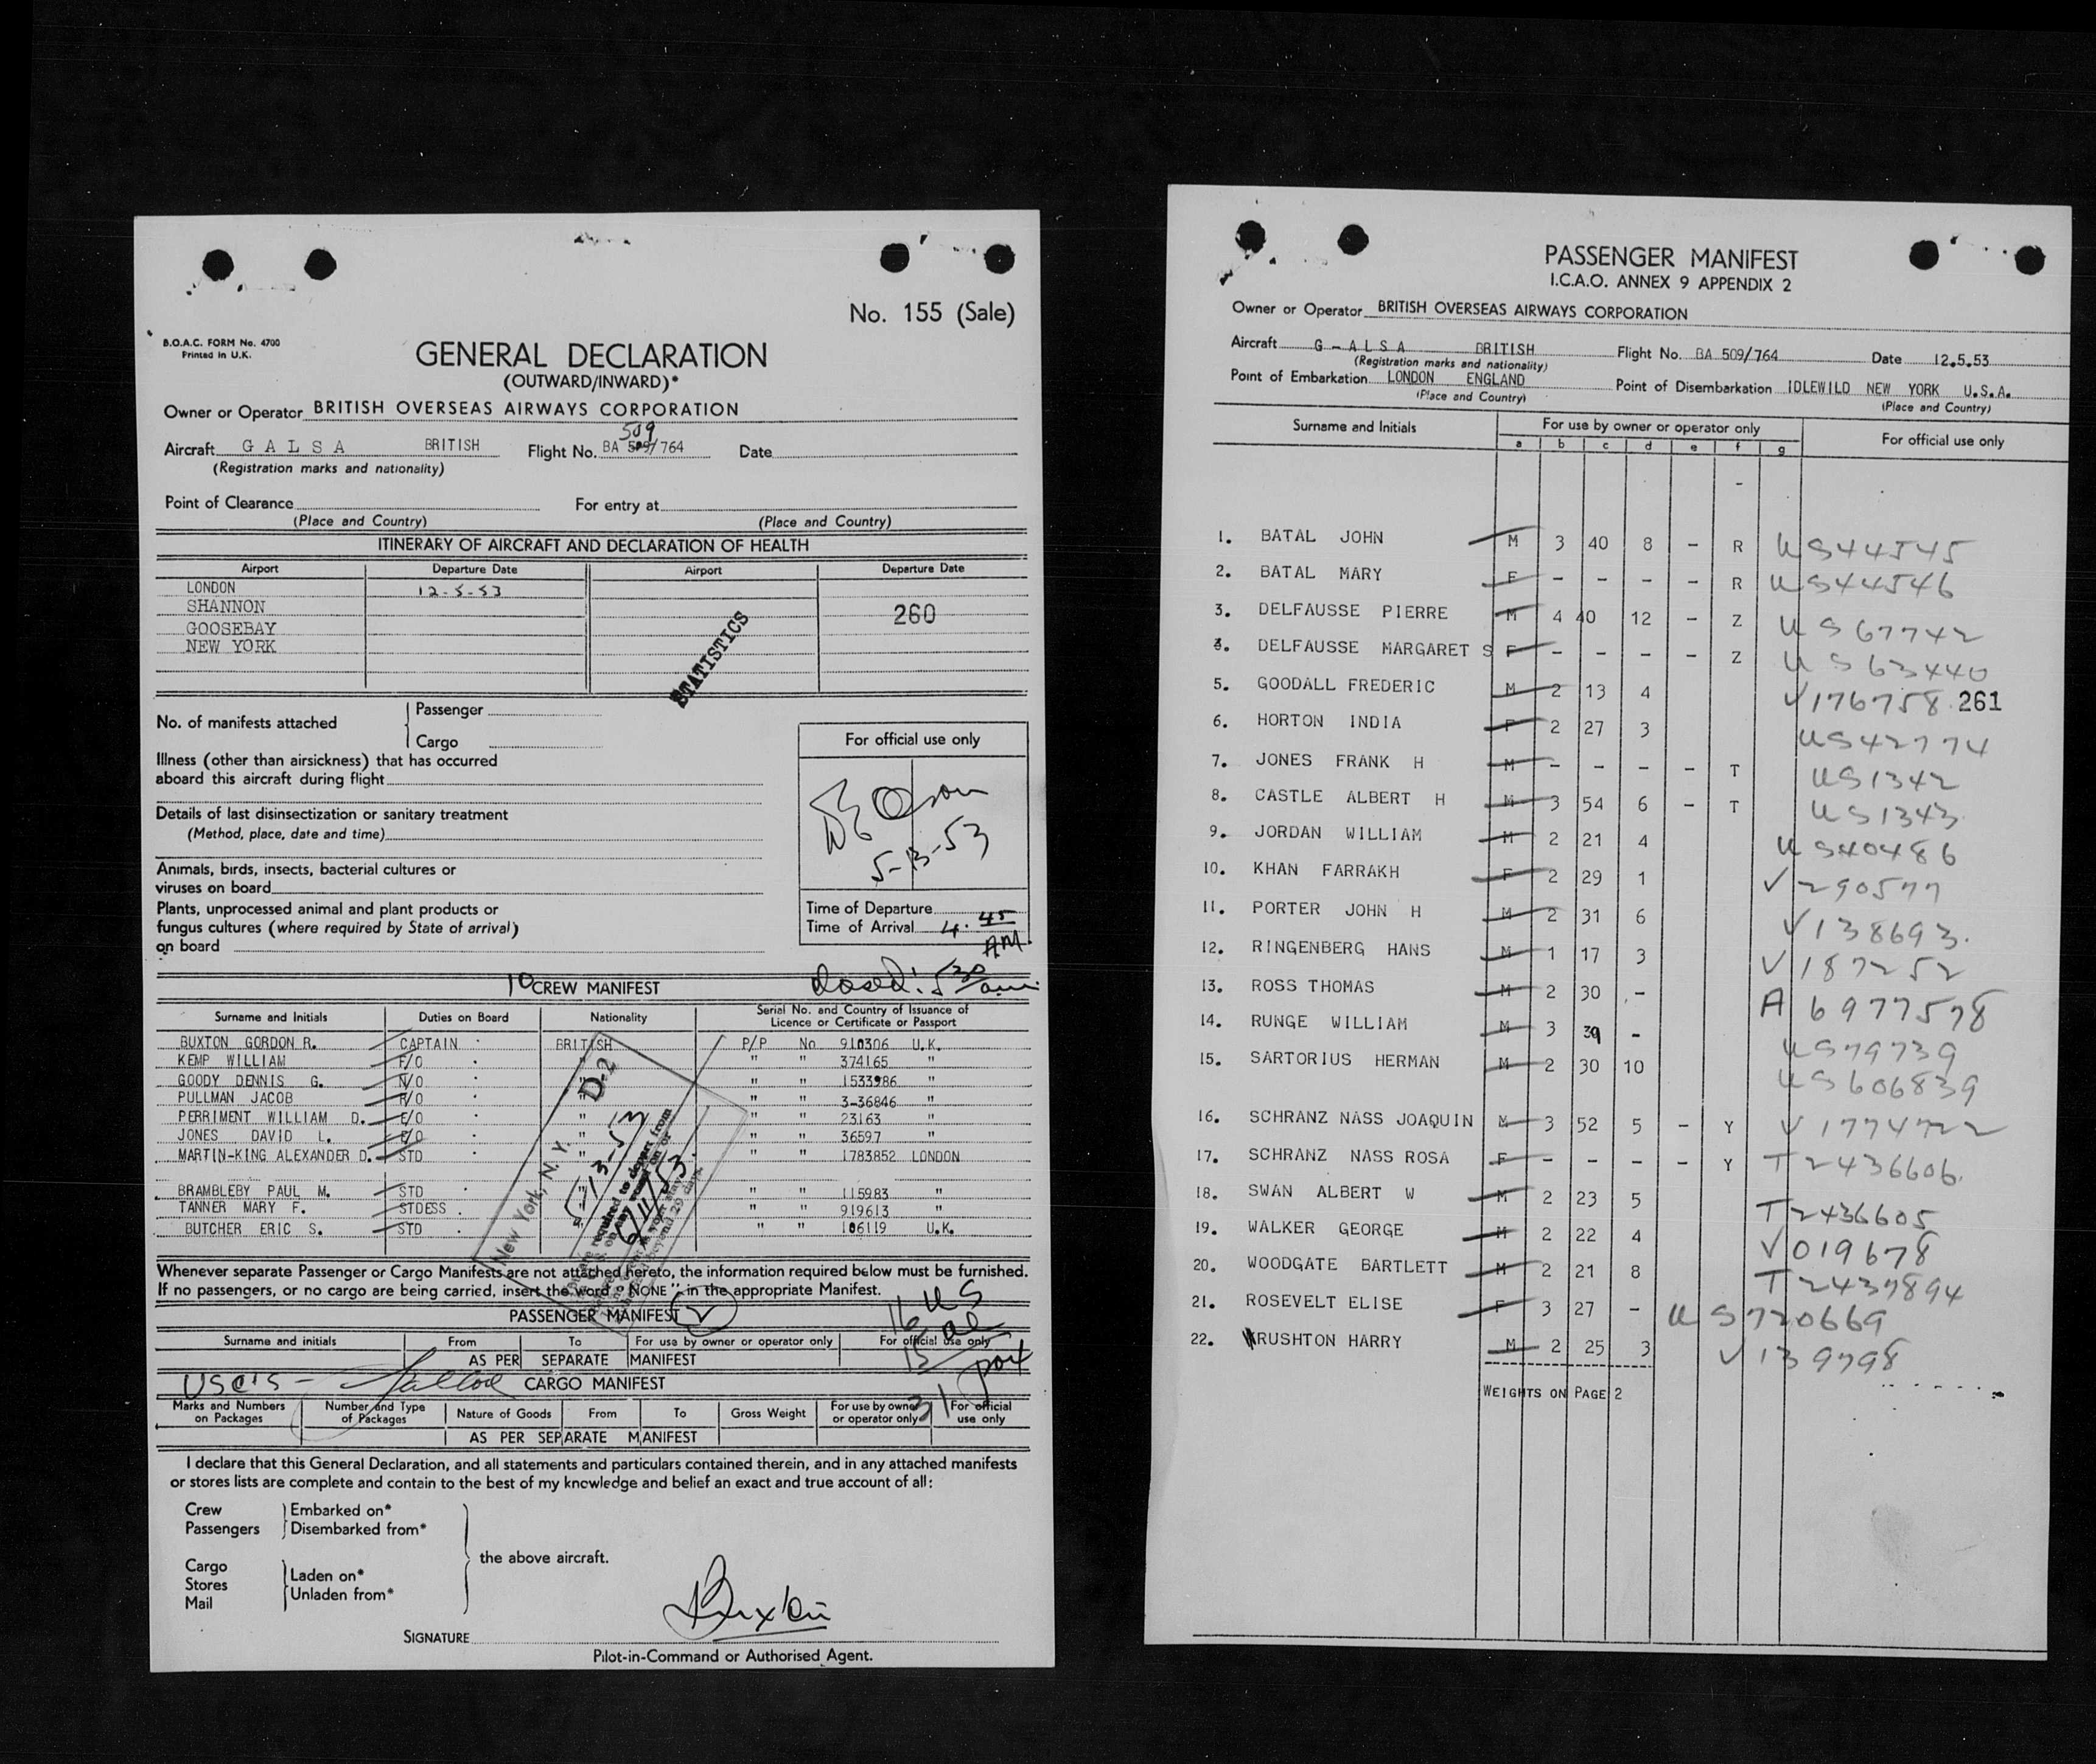 No. 155 (Sale)
B.O.A.C. FORM No. 4700
Printed in U.K.
GENERAL DECLARATION
(OUTWARD/INWARD)*
Owner or Operator BRITISH OVERSEAS AIRWAYS CORPORATION
509
Aircraft G A L S A BRITISH Flight No. BA 509/764 Date
(Registration marks and nationality)
Point of Clearance For entry at
(Place and Country) (Place and Country)
ITINERARY OF AIRCRAFT AND DECLARATION OF HEALTH
Airport Departure Date Airport Departure Date
LONDON 12-5-53
SHANNON 260
GOOSEBAY
NEW YORK
STATISTICS
No. of manifests attached Passenger
Cargo
For official use only
Illness (other than airsickness) that has occurred
aboard this aircraft during flight
Details of last disinsectization or sanitary treatment
(Method, place, date and time)
5-13-53
Animals, birds, insects, bacterial cultures or
viruses on board
Plants, unprocessed animal and plant products or
fungus cultures (where required by State of arrival)
on board
Time of Departure
Time of Arrival 4.45
AM.
10 CREW MANIFEST closed: 5 30 am
Surname and Initials Duties on Board Nationality Serial No. and Country of Issuance of
Licence or Certificate or Passport
BUXTON GORDON R. CAPTAIN BRITISH P/P No 910306 U.K.
KEMP WILLIAM F/O " " " 374165 "
GOODY DENNIS G. N/O " " " 1533986 "
PULLMAN JACOB R/O " " " 3-36846 "
PERRIMENT WILLIAM D. E/O " " " 23163 "
JONES DAVID L. E/O " " " 36597 "
MARTIN-KING ALEXANDER D. STD " " " 1783852 LONDON
BRAMBLEBY PAUL M. STD " " " 115983 "
TANNER MARY F. STDESS " " 919613 "
BUTCHER ERIC S. STD " " 106119 U.K.
New York, N. Y.
D-2
5-13-53
required to depart from
6/11/53
beyond 29 days
Whenever separate Passenger or Cargo Manifests are not attached hereto, the information required below must be furnished.
If no passengers, or no cargo are being carried, insert the word "NONE" in the appropriate Manifest.
PASSENGER MANIFEST 2
16 US
15 al
31 port
Surname and initials From To For use by owner or operator only For official use only
AS PER SEPARATE MANIFEST
USCIS - CARGO MANIFEST
Marks and Numbers on Packages Number and Type of Packages Nature of Goods From To Gross Weight For use by owner or operator only For official use only
AS PER SEPARATE MANIFEST
I declare that this General Declaration, and all statements and particulars contained therein, and in any attached manifests
or stores lists are complete and contain to the best of my knowledge and belief an exact and true account of all:
Crew Embarked on*
Passengers Disembarked from*
the above aircraft.
Cargo Laden on*
Stores Unladen from*
Mail
Buxton
SIGNATURE
Pilot-in-Command or Authorised Agent.
PASSENGER MANIFEST
I.C.A.O. ANNEX 9 APPENDIX 2
Owner or Operator BRITISH OVERSEAS AIRWAYS CORPORATION
Aircraft G-ALSA BRITISH Flight No. BA 509/764 Date 12.5.53
(Registration marks and nationality)
Point of Embarkation LONDON ENGLAND Point of Disembarkation IDLEWILD NEW YORK U.S.A.
(Place and Country) (Place and Country)
Surname and Initials For use by owner or operator only For official use only
a b c d e f g
-
1. BATAL JOHN M 3 40 8 - R US44545
2. BATAL MARY F - - - - R US44546
3. DELFAUSSE PIERRE M 4 40 12 - Z US67742
3. DELFAUSSE MARGARET S F - - - - Z US63440
5. GOODALL FREDERIC M 2 13 4 V176758 261
6. HORTON INDIA F 2 27 3 US42774
7. JONES FRANK H M - - - - T US1342
8. CASTLE ALBERT H M 3 54 6 - T US1343
9. JORDAN WILLIAM M 2 21 4 US40486
10. KHAN FARRAKH F 2 29 1 V290577
11. PORTER JOHN H M 2 31 6 V138693.
12. RINGENBERG HANS M 1 17 3 V187252
13. ROSS THOMAS M 2 30 - A6977578
14. RUNGE WILLIAM M 3 39 - US79739
15. SARTORIUS HERMAN M 2 30 10 US606839
16. SCHRANZ NASS JOAQUIN M 3 52 5 - Y V1774722
17. SCHRANZ NASS ROSA F - - - - Y T2436606.
18. SWAN ALBERT W M 2 23 5 T2436605
19. WALKER GEORGE M 2 22 4 V019678
20. WOODGATE BARTLETT M 2 21 8 T2437894
21. ROSEVELT ELISE F 3 27 - US720669
22. RUSHTON HARRY M 2 25 3 V139798
WEIGHTS ON PAGE 2